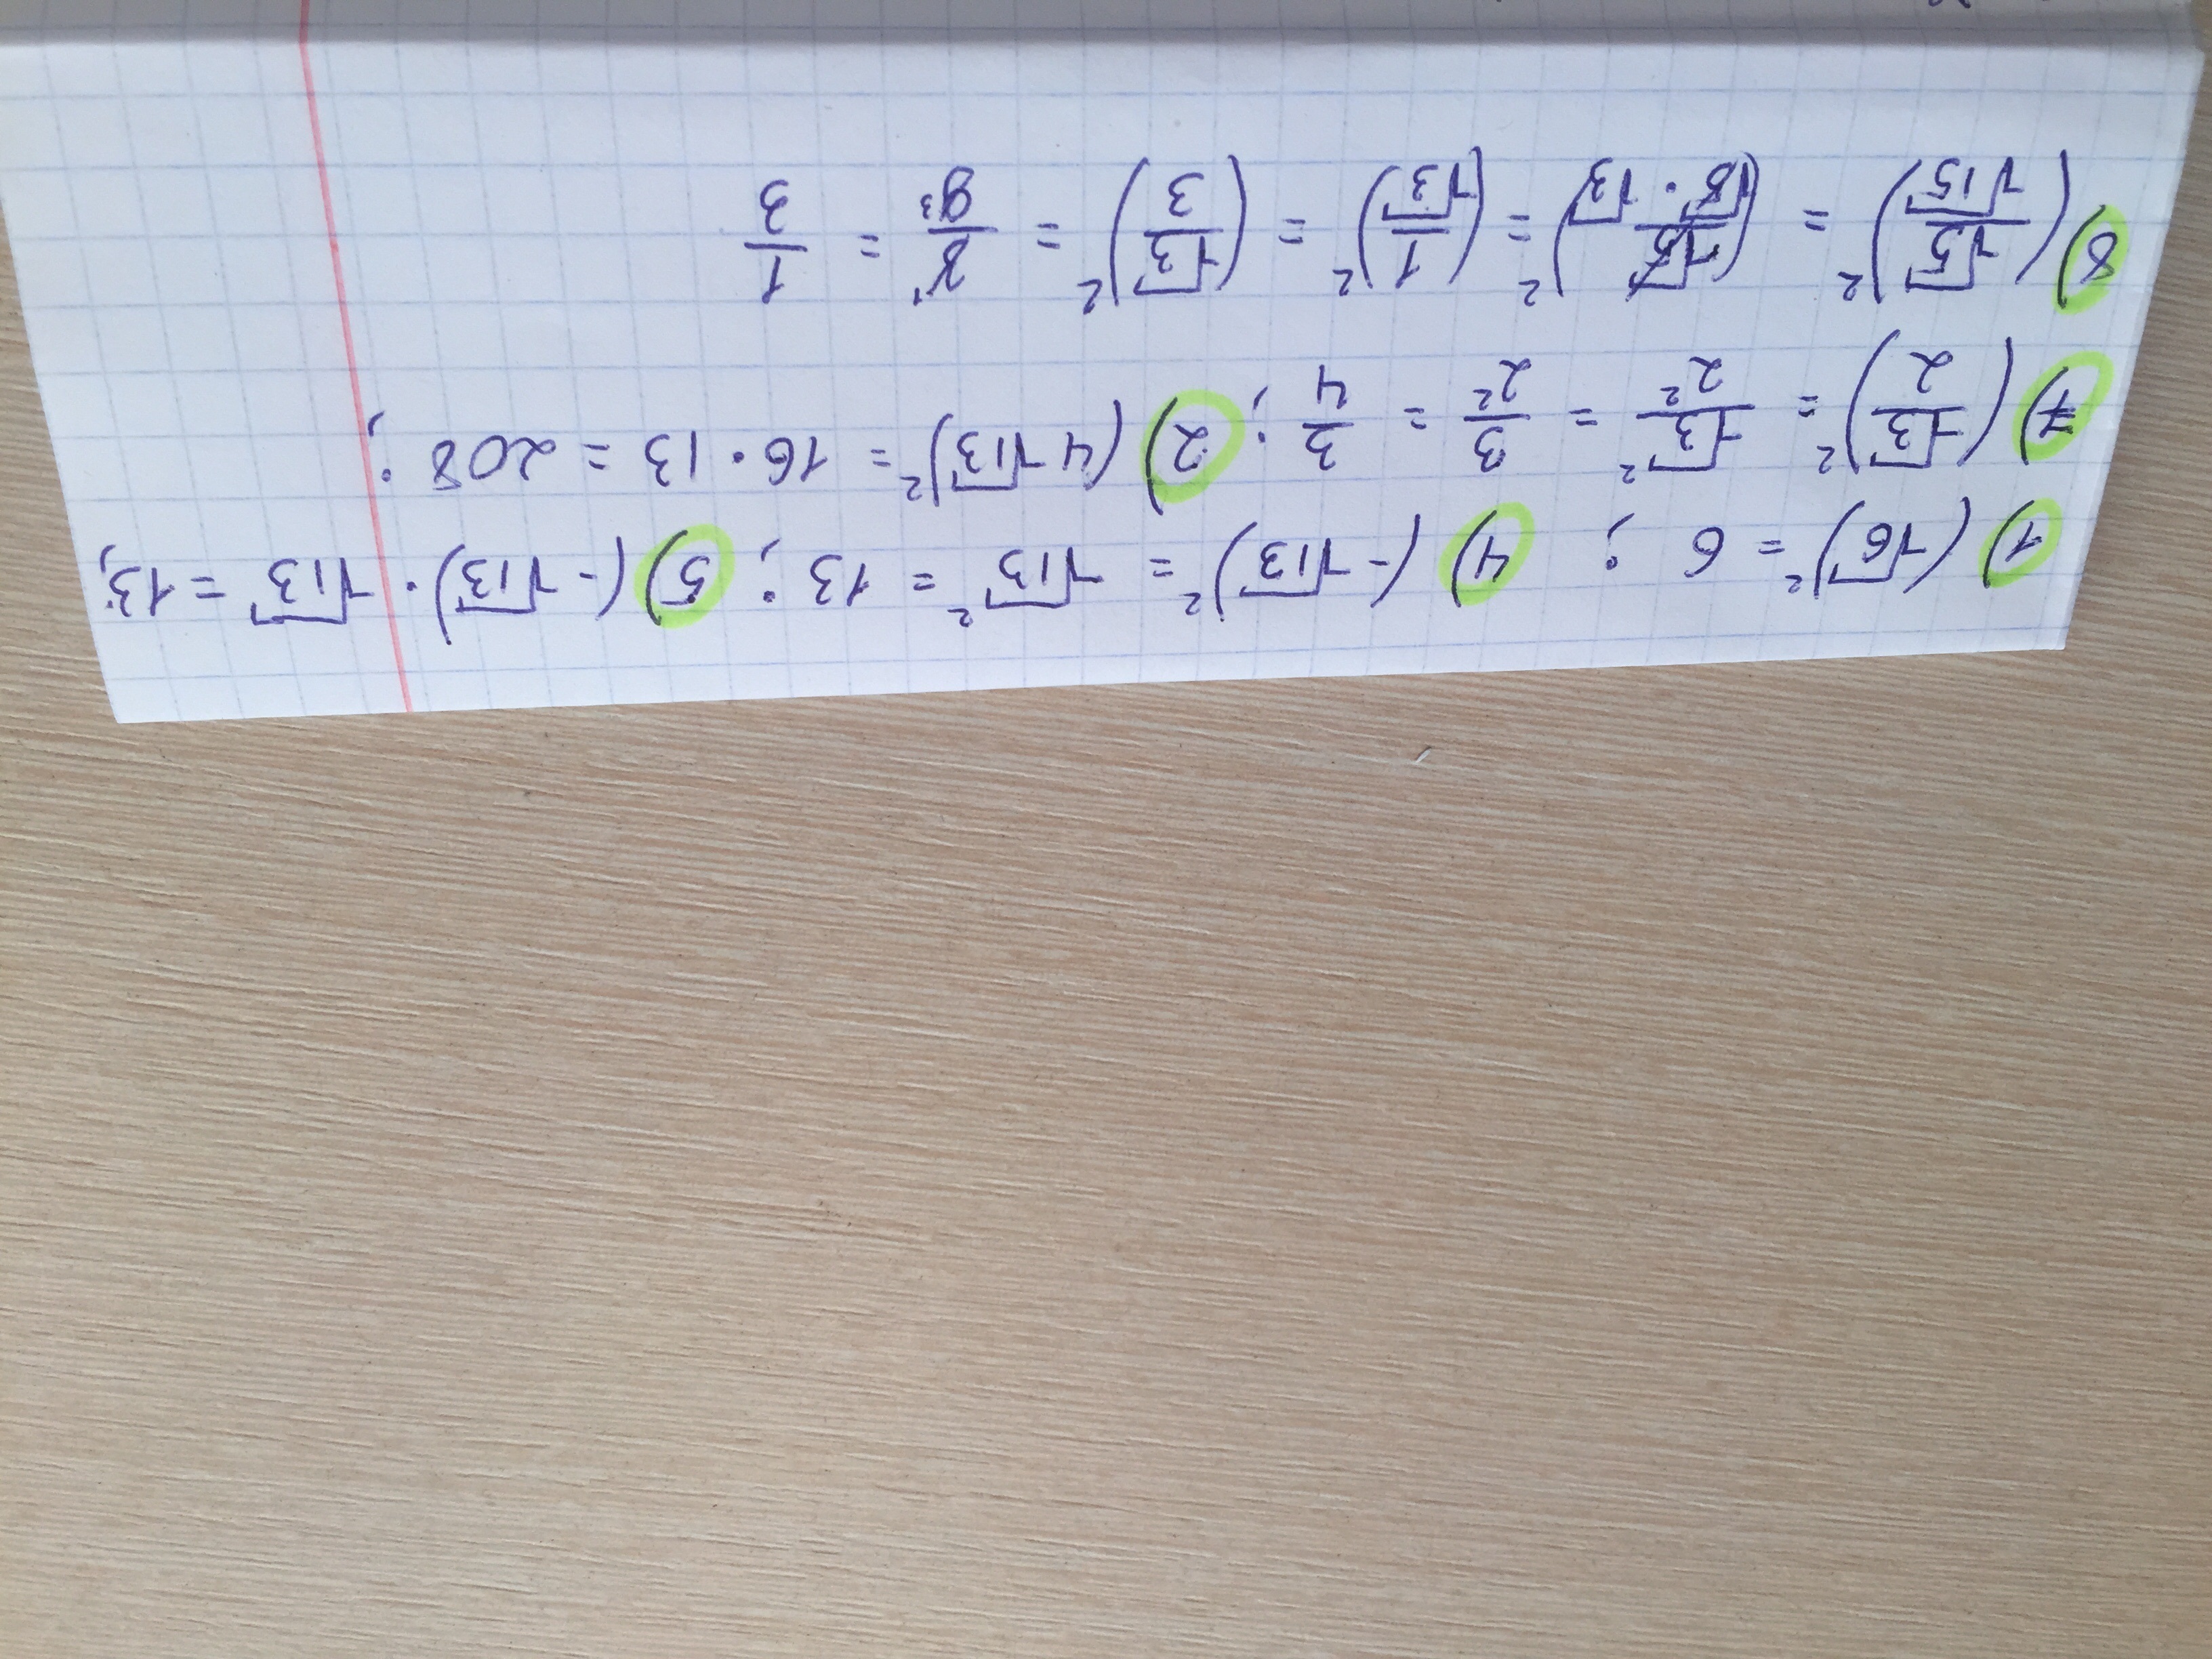 1) (√6)² = 6 ; 4) (-√13)² = √13² = 13 ; 5) (-√13) · √13 = 13;
7) (√3/2)² = √3²/2² = 3/2² = 3/4 ; 2) (4√13)² = 16 · 13 = 208 ;
8) (√5/√15)² = (√5/√5 · √3)² = (1/√3)² = (√3/3)² = 3¹/9³ = 1/3